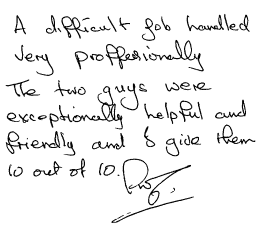 A difficult job handled
very proffesionally
The two guys were
exceptionally helpful and
friendly and I give them
10 out of 10.